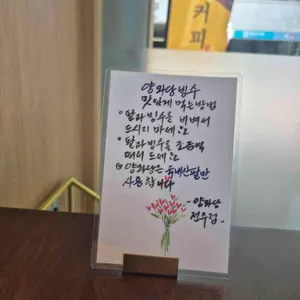 커피
양화당 빙수
맛있게 먹는방법
팥과 빙수를 비벼서
드시지 마세요
팥과 빙수를 조금씩
떠서 드세요
양화당은 국내산팥만
사용합니다
-양화당